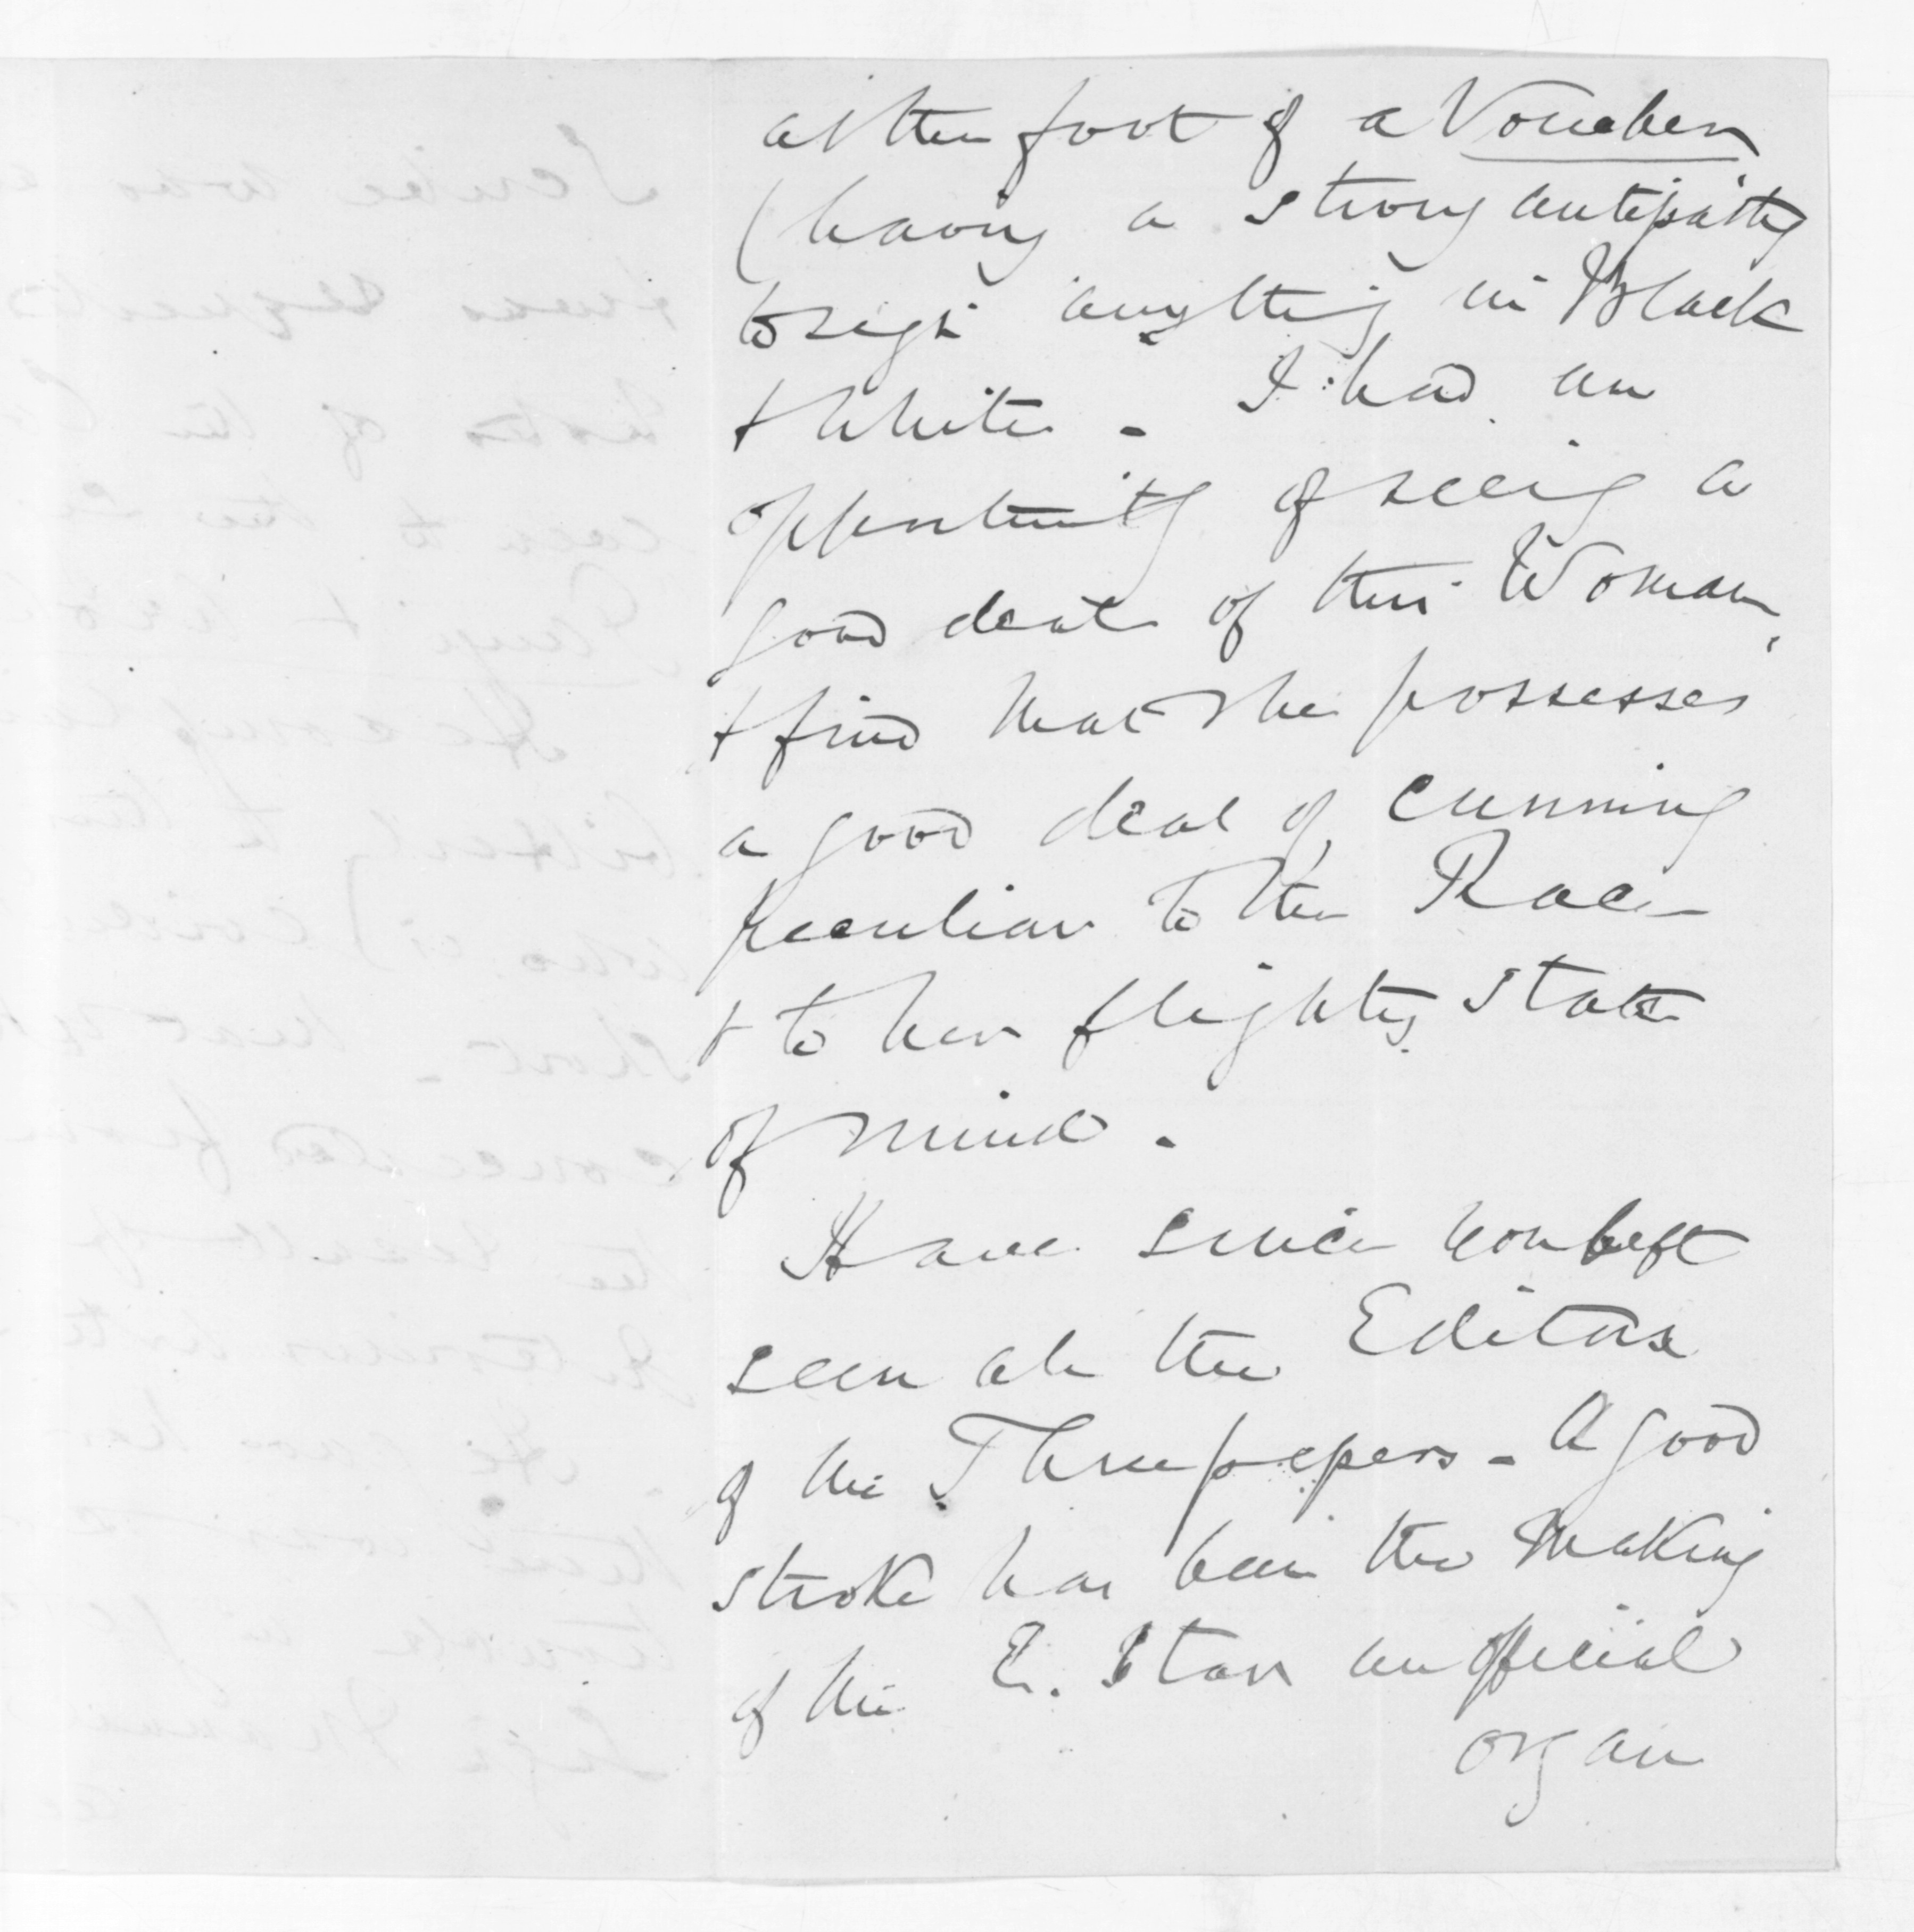 at the foot of a Voucher
(having a strong antipathy
to sign anything in Black
& White. I had an
opportunity of seeing a
good deal of this Woman,
& find that she possesses
a good deal of cunning
peculiar to the Race
& to her flighty state
of mind.
Have since you left
seen all the Editors
of the Three papers - A good
stroke has been the making
of the E. Star an official
organ